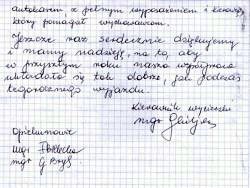 autokarem z pełnym wyposażeniem i kierowcę,
który pomagał wychowawcom.
Jeszcze raz serdecznie dziękujemy
i mamy nadzieję, na to, aby
w przyszłym roku nasza współpraca
układała się tak dobrze, jak podczas
tegorocznego wyjazdu.
Kierownik wycieczki
mgr
Opiekunowie
mgr
mgr